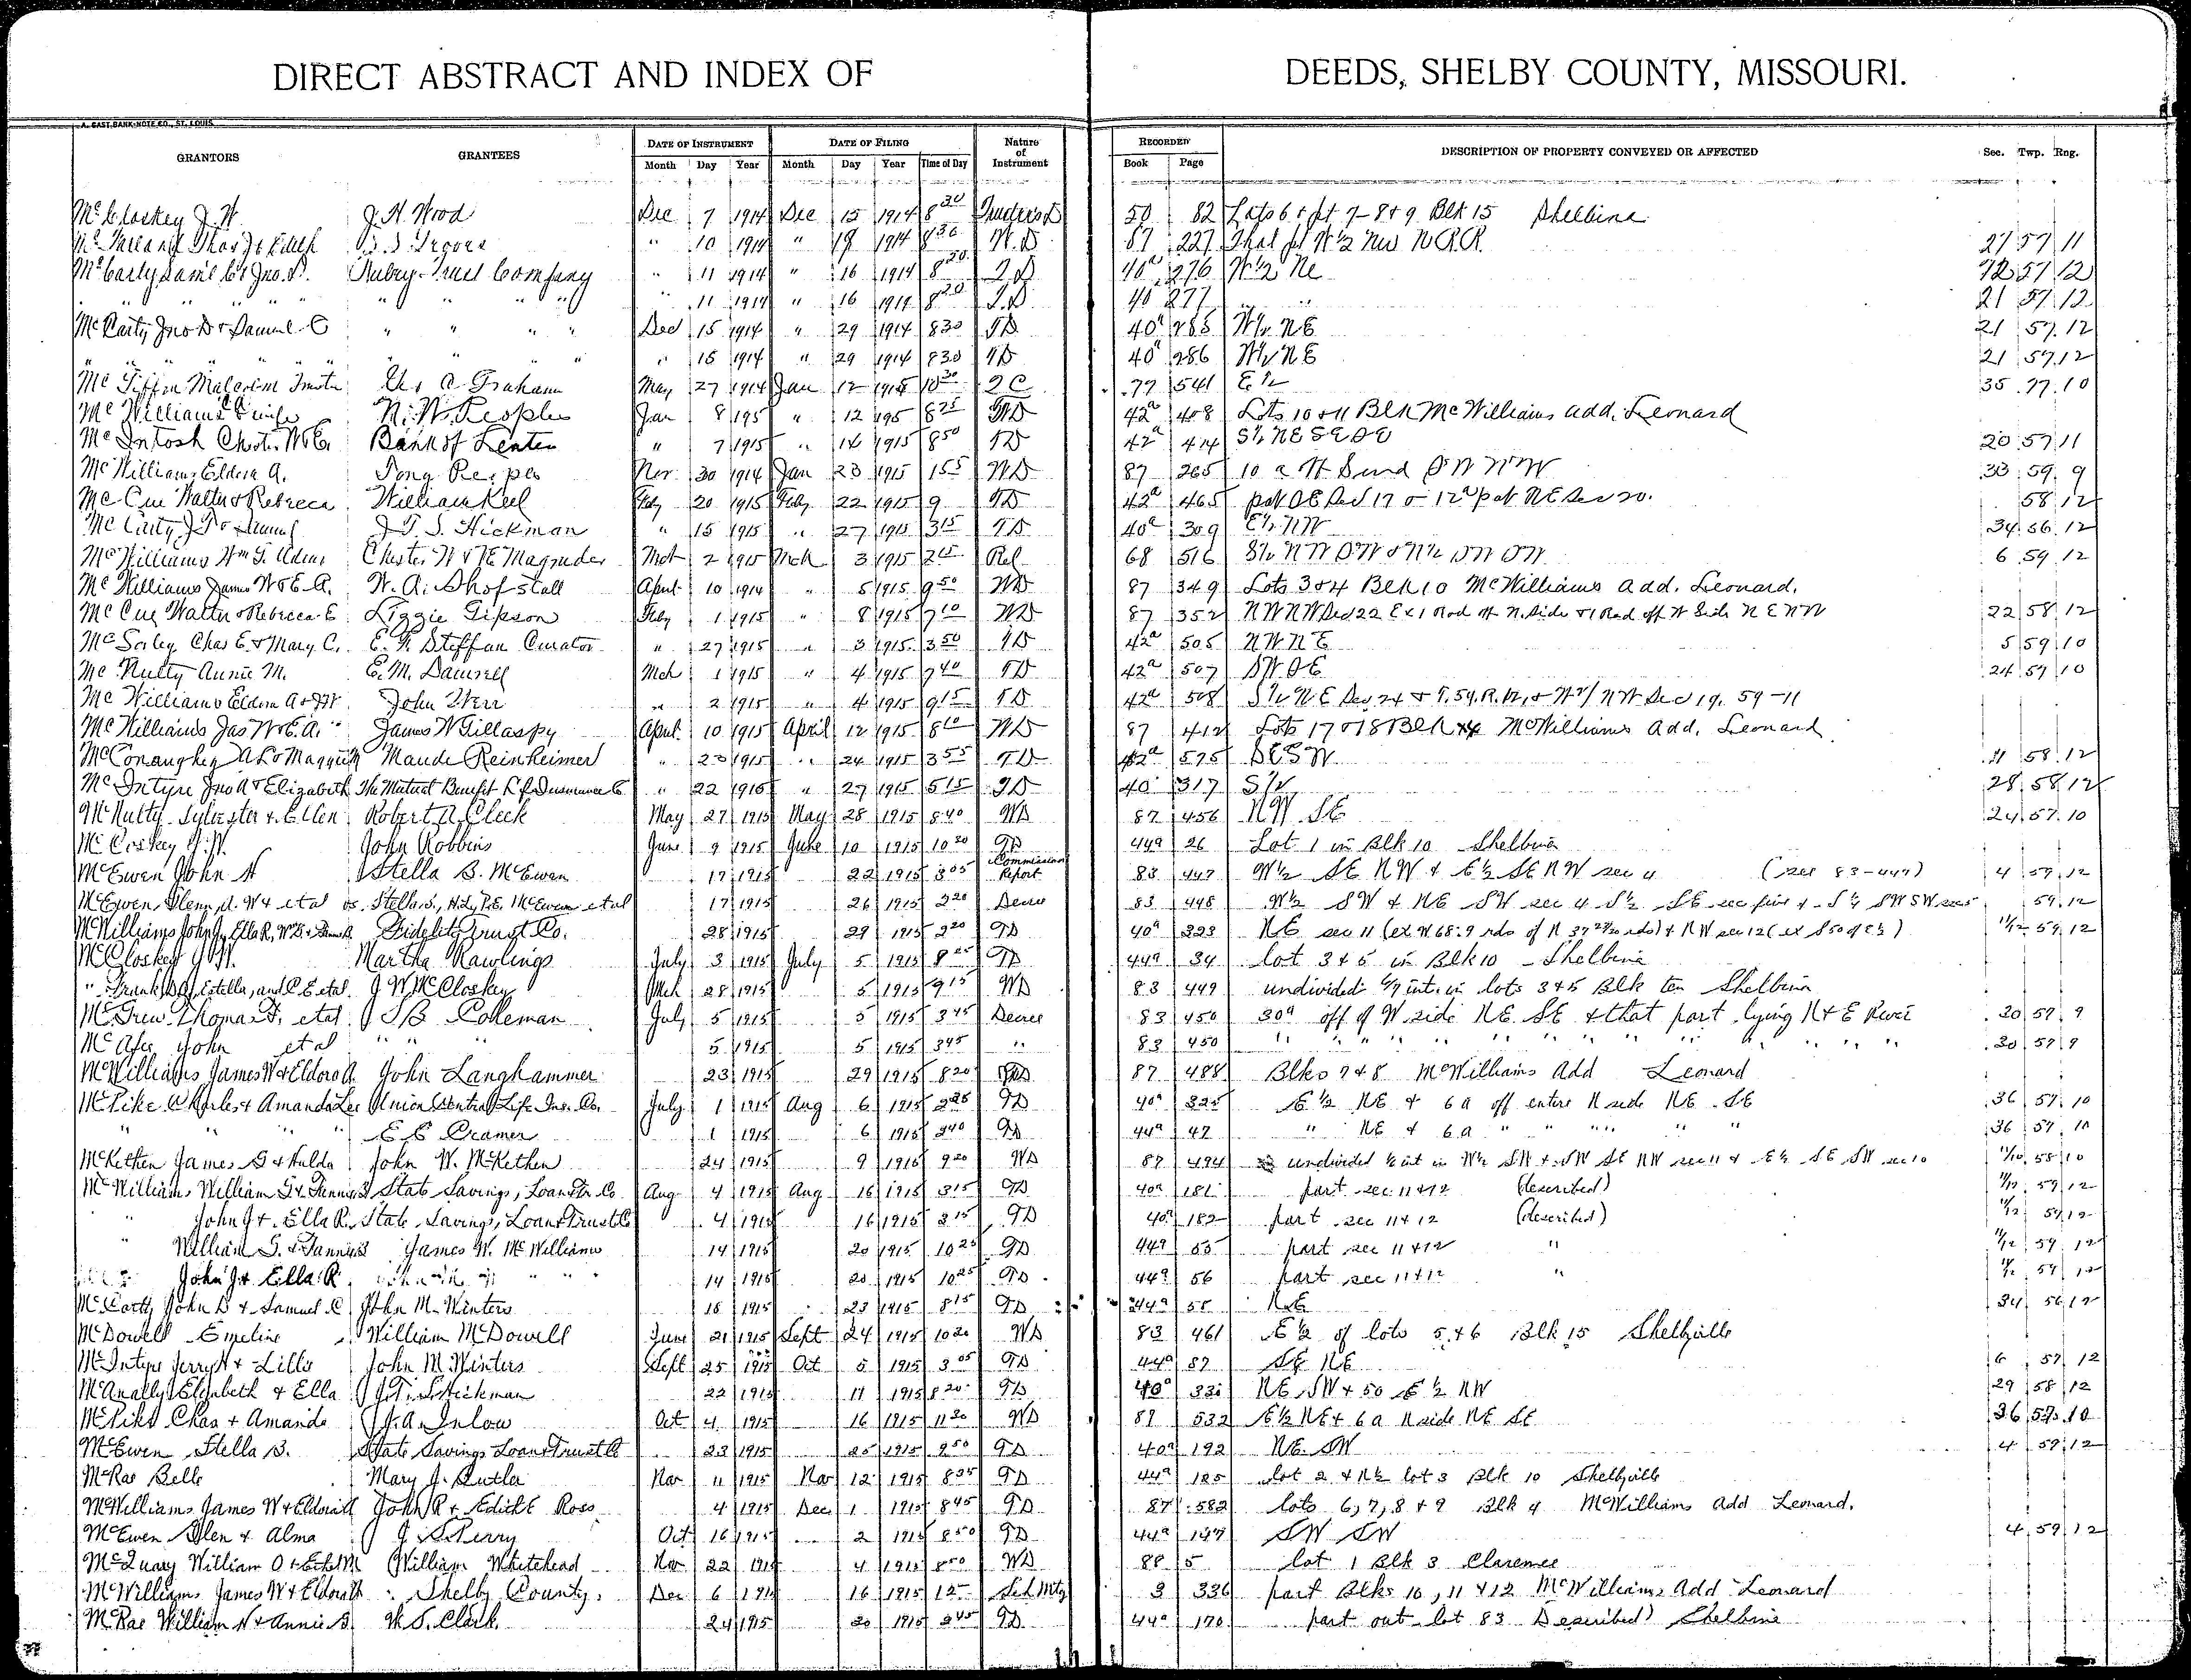 DIRECT ABSTRACT AND INDEX OF DEEDS, SHELBY COUNTY, MISSOURI.
A. GAST BANK NOTE CO., ST. LOUIS
GRANTORS GRANTEES DATE OF INSTRUMENT DATE OF FILING Nature of Instrument RECORDED DESCRIPTION OF PROPERTY CONVEYED OR AFFECTED Sec. Twp. Rng.
Month Day Year Month Day Year Time of Day Book Page
McCloskey J. W. J. H. Wood Dec 7 1914 Dec 15 1914 8 30 50 82 Lots 6 & pt 7-8 & 9 Blk 15 Shelbina
" 10 1914 " 1914 8 30 W.D 87 227 That pt W½ NW N R.R. 27 57 11
McCarty Sam'l C & Jno. D. Trust Company " 11 1914 " 16 1914 8 30 T.D 40a 276 W½ Ne 57 12
" " " " " " 11 1914 " 16 1914 8 30 T.D 40 277 " " 21 57 12
McCarty Jno D & Samuel C " " " " Dec 15 1914 " 29 1914 830 TD 40a 285 W½ NE 21 57 12
" " " " " " 15 1914 " 29 1914 830 TD 40a 286 W½ NE 21 57 12
Mc Malcolm A Graham May 27 1914 Jan 12 1915 10 30 Q C 77 541 E½ 35 10
McWilliams & wife N. W. Peoples Jan 8 195 " 12 195 8 25 42a 408 Lots 10 & 11 Blk McWilliams add. Leonard
McIntosh Chest. W & E. Bank of Lenten " 7 1915 " 14 1915 8 50 TD 42a 414 S½ NE SE 20 57 11
McWilliams Eldora A. Nov 30 1914 Jan 23 1915 1 55 WD 87 265 10 a 33 59 9
McCue Walter & Rebecca William Keil Feby 20 1915 Feby 22 1915 9 TD 42a 465 pt SE Sec 17 & 12a pt NE Sec 20. 58 12
McCarty J D & Samuel J. T. S. Hickman " 15 1915 " 27 1915 3 15 TD 40a 309 E½ NW 34 56 12
McWilliams Wm G. Chester W & E Magruder Mch 2 1915 Mch 3 1915 2 15 Rel 68 516 S½ NW SW & N½ SW SW 6 59 12
McWilliams James W & E. A. W. A. Shofstall April 10 1914 " 5 1915 9 50 WD 87 349 Lots 3 & 4 Blk 10 McWilliams add. Leonard.
McCue Walter & Rebecca E Lizzie Gipson Feby 1 1915 " 8 1915 7 10 WD 87 352 NW NW Sec 22 Ex 1 Rod off N. side & 1 Rod off W Side NE NW 22 58 12
Chas E. & Mary C. E. F. Steffan Curator " 27 1915 " 3 1915 3 50 TD 42a 505 NW NE 5 59 10
McNulty Annie M. E. M. Damrell Mch 1 1915 " 4 1915 7 40 TD 42a 507 SW SE 24 57 10
McWilliams Eldora A & J W John Werr " 2 1915 " 4 1915 9 15 TD 42a 508 S½ NE Sec 24 & T. 59. R. 12, & W½ NW Sec 19. 59-11
McWilliams Jas W & E. A. James W Gillaspy April 10 1915 April 12 1915 8 10 WD 87 412 Lots 17 & 18 Blk McWilliams Add. Leonard
McConaughey Maude Reinheimer " 23 1915 " 24 1915 3 55 T.D 42a 575 SE SW 11 58 12
McIntyre Jno A & Elizabeth The Mutual Benefit Life Insurance Co " 22 1915 " 27 1915 5 15 T.D 40 317 S½ 28 58 12
McNulty Sylvester & Ellen Robert A. Cleek May 27 1915 May 28 1915 840 WD 87 456 NW SE 24 57 10
John Robbins June 9 1915 June 10 1915 10 20 TD 44a 26 Lot 1 in Blk 10 Shelbina
McEwen John H Stella B. McEwen 17 1915 22 1915 3 05 Commission Report 83 447 W½ SE NW & E½ SE NW sec 4 (see 83-447) 4 59 12
McEwen, Glenn, et al vs. Stella B., McEwen et al 17 1915 26 1915 2 20 Decree 83 448 W½ SW & NE SW sec 4 S½ SE sec five & S½ SW SW 59 12
McWilliams John J, Ella R, Fidelity Trust Co. 28 1915 29 1915 2 20 TD 40a 323 NE sec 11 & NW sec 12 11/12 59 12
McCloskey J. W. Martha Rawlings July 3 1915 July 5 1915 8 25 TD 44a 34 lot 3 & 5 in Blk 10 - Shelbina
" Frank, Estella, and C E et al. J W McCloskey Mch 28 1915 5 1915 9 15 WD 83 449 undivided int. in lots 3 & 5 Blk ten Shelbina
McGrew Thomas F. et al J B Coleman July 5 1915 5 1915 3 45 Decree 83 450 30a off of W side NE SE & that part lying N & E River 20 57 9
McAfee John et al " " 5 1915 5 1915 3 45 " 83 450 " " " " " " 20 57 9
McWilliams James W & Eldora A John Langhammer 23 1915 29 1915 8 20 87 488 Blks 7 & 8 McWilliams Add Leonard
McPike Charles & Amanda Lee Union Central Life Ins. Co. July 1 1915 Aug 6 1915 2 35 TD 40a 325 E½ NE & 6 a off entire N side NE SE 36 57 10
" " " " E E Cramer 1 1915 6 1915 2 40 TD 44a 47 " NE & 6 a " " " " " 36 57 10
McKethen James S & Hulda John W. McKethen 24 1915 9 1915 9 20 WD 87 494 undivided ½ int in W½ SW & SW SE NW sec 11 & E½ SE SW sec 10 11/10 58 10
McWilliams William G & Fannie B State Savings, Loan & Tr. Co Aug 4 1915 Aug 16 1915 3 15 TD 40a 181 part sec. 11 & 12 (described) 11/12 59 12
" John J & Ella R. State Savings, Loan & Trust Co 4 1915 16 1915 3 15 TD 40a 182 part sec 11 & 12 (described) 11/12 59 12
" William G. & Fannie B James W. McWilliams 14 1915 20 1915 10 25 TD 44a 55 part sec 11 & 12 " 11/12 59 12
John J & Ella R. " " " 14 1915 20 1915 10 25 TD 44a 56 part sec 11 & 12 " 11/12 59 12
McCarty John D & Samuel C John M. Winters 18 1915 23 1915 8 15 TD 44a 58 NE 34 56 12
McDowell Emeline William McDowell June 21 1915 Sept 24 1915 10 20 WD 83 461 E½ of lots 5 & 6 Blk 15 Shelbyville
McIntyre Jerry N & Lillie John M. Winters Sept 25 1915 Oct 5 1915 3 05 TD 44a 87 SE NE 6 57 12
McAnally Elizabeth & Ella J. T. S Hickman 22 1915 11 1915 8 20 TD 40a 331 NE SW & 50 E½ NW 29 58 12
McPike Chas & Amanda J. A. Inlow Oct 4 1915 16 1915 11 30 WD 87 532 E½ NE & 6 a N side NE SE 36 57 10
McEwen Stella B. State Savings Loan & Trust Co 23 1915 25 1915 9 50 TD 40a 192 NE SW 4 59 12
McRae Belle Mary J. Butler Nov 11 1915 Nov 12 1915 8 35 TD 44a 125 lot 2 & N½ lot 3 Blk 10 Shelbyville
McWilliams James W & Eldora A John R & Edith E Ross 4 1915 Dec 1 1915 8 45 TD 87 582 lots 6, 7, 8 & 9 Blk 4 McWilliams Add Leonard.
McEwen Glen & Alma J. S. Perry Oct 16 1915 2 1915 8 50 TD 44a 147 SW SW 4 59 12
McQuary William O & Ethel M. William Whitehead Nov 22 1915 4 1915 8 50 WD 88 5 lot 1 Blk 3 Clarence
McWilliams James W & Eldora A Shelby County. Dec 6 191 16 1915 12 Sch Mtg 3 336 part Blks 10, 11 & 12 McWilliams Add Leonard
McRae William N & Annie B W. S. Clark. 24 1915 20 1915 2 45 TD 44a 170 part out lot 83 Described) Shelbina